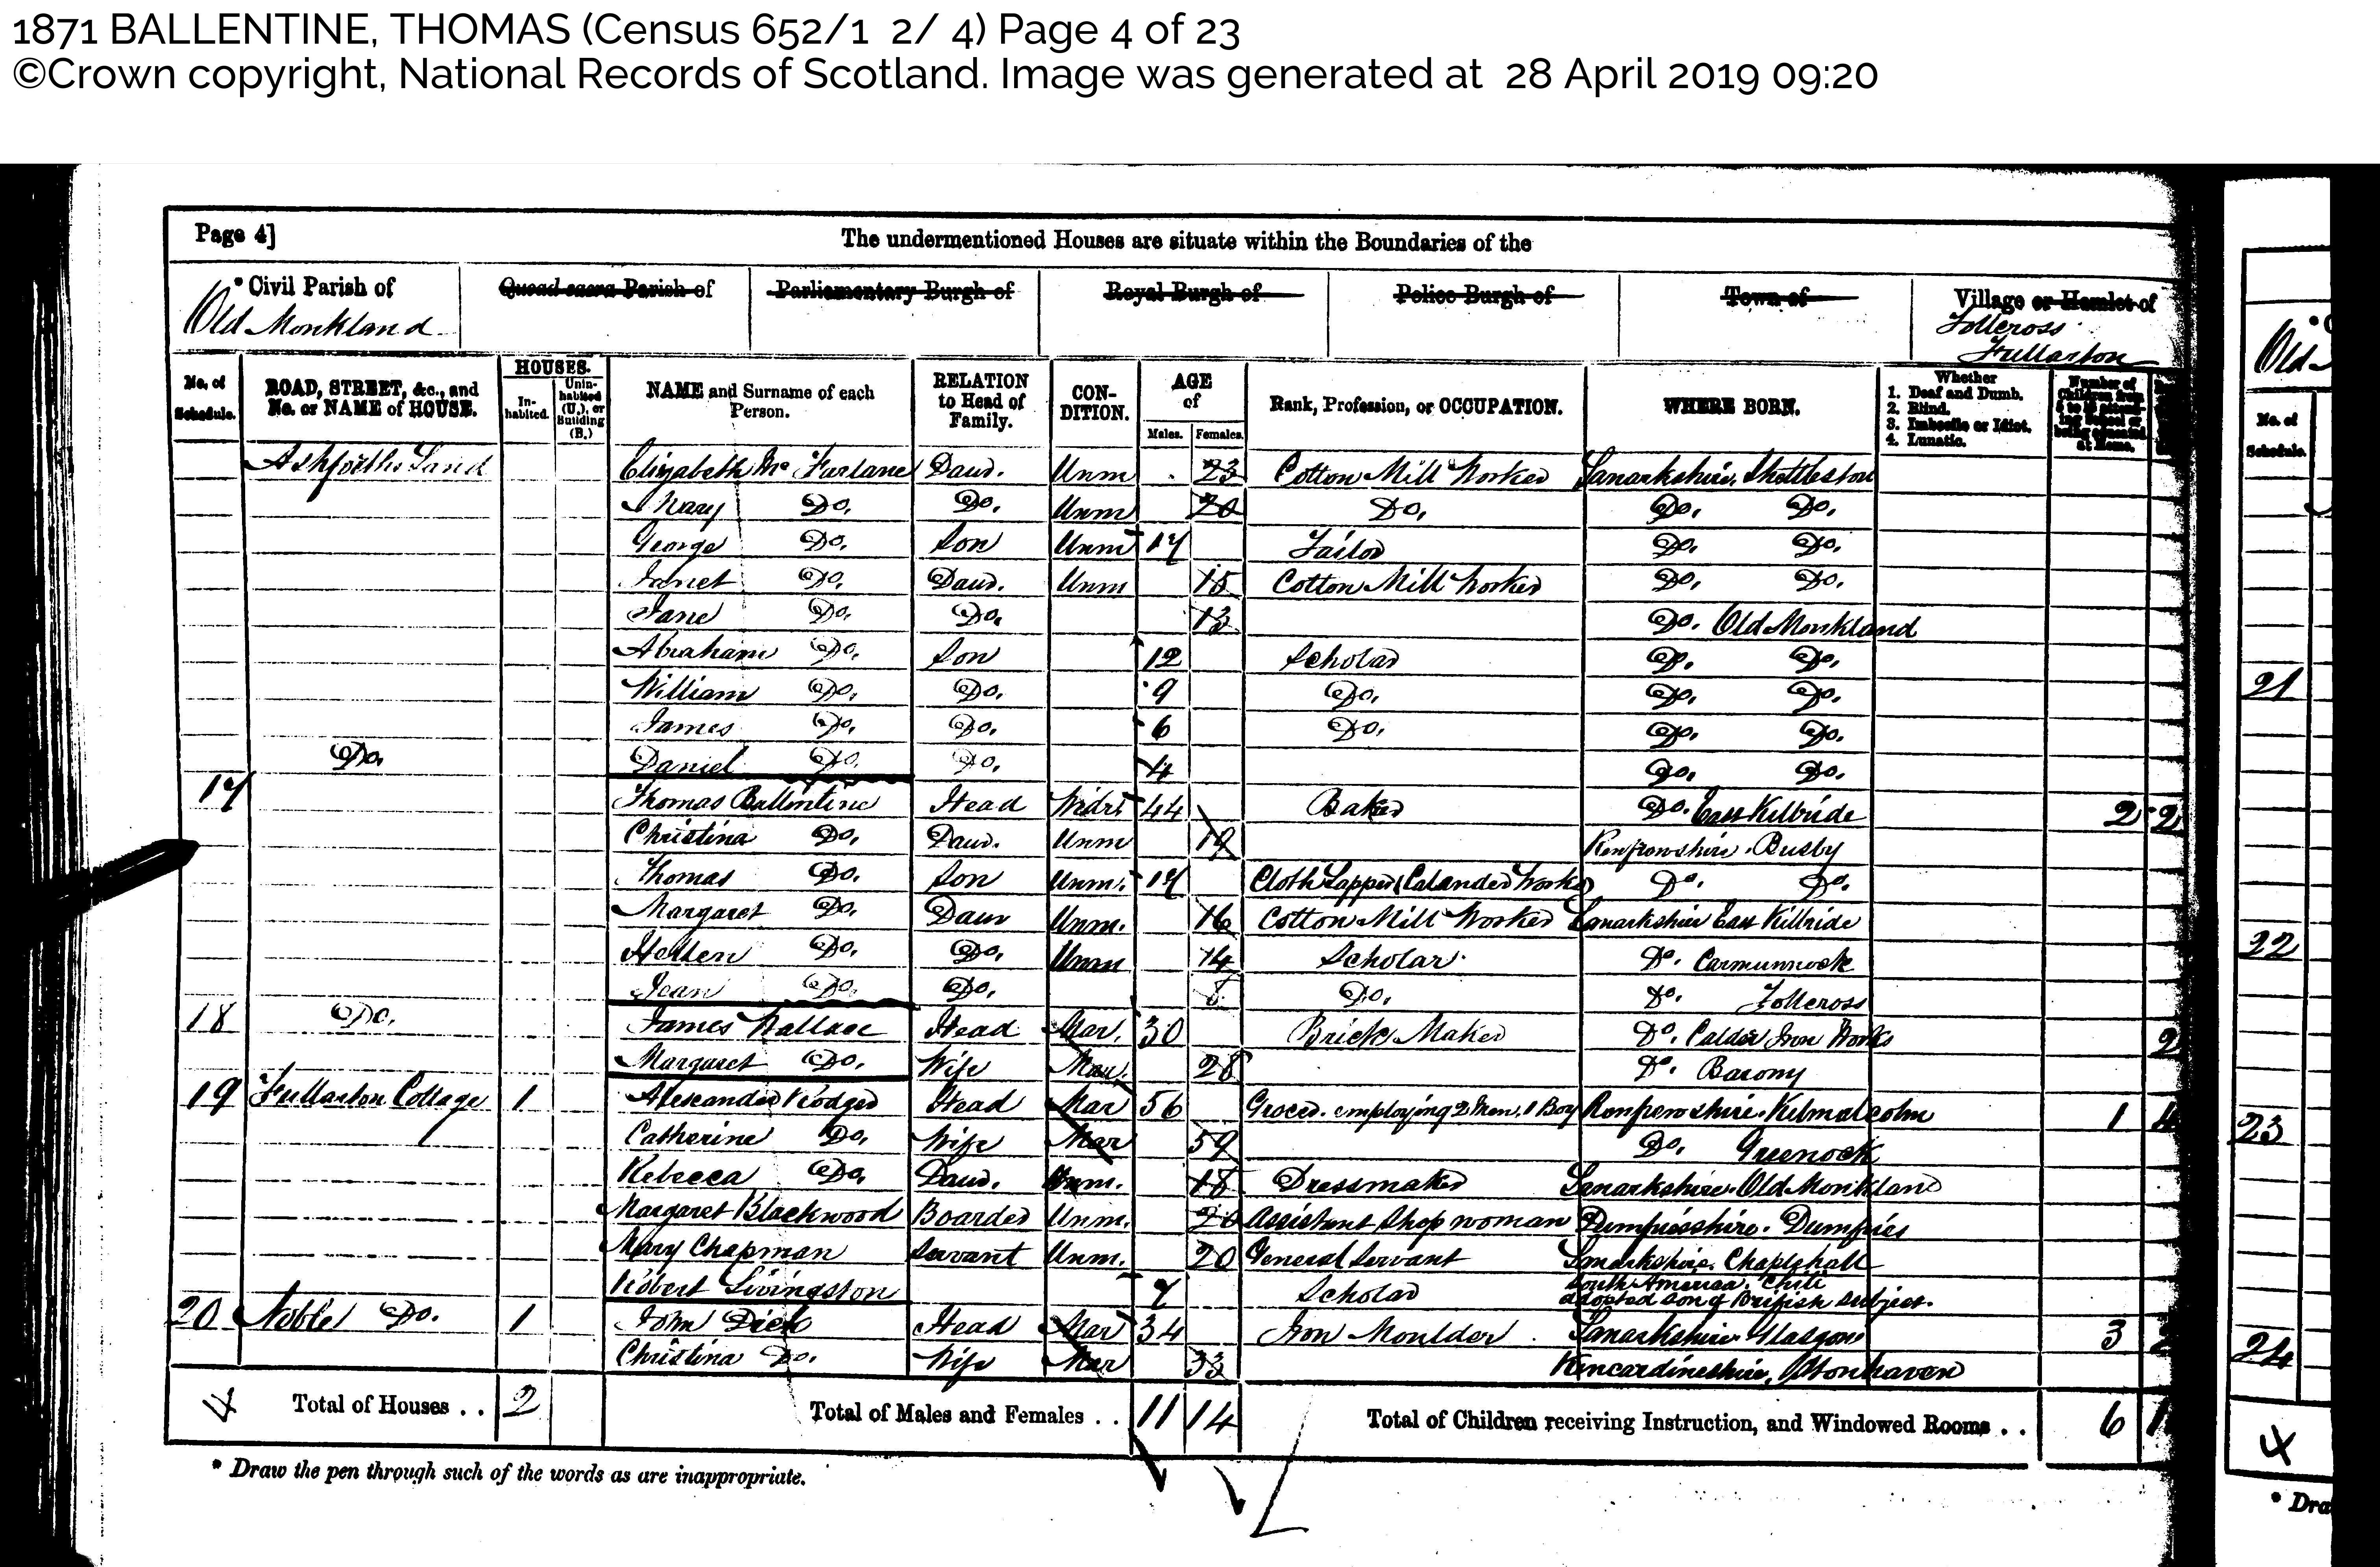 1871 BALLENTINE, THOMAS (Census 652/1 2/ 4) Page 4 of 23
©Crown copyright, National Records of Scotland. Image was generated at 28 April 2019 09:20
Page 4]
The undermentioned Houses are situate within the Boundaries of the
* Civil Parish of Quoad sacra Parish of Parliamentary Burgh of Royal Burgh of Police Burgh of Town of Village or Hamlet of
Old Monkland Tollcross
Fullarton
No. of Schedule. ROAD, STREET, &c., and No. or NAME of HOUSE. HOUSES. Inhabited. Uninhabited (U.), or Building (B.) NAME and Surname of each Person. RELATION to Head of Family. CONDITION. AGE of Males. Females. Rank, Profession, or OCCUPATION. WHERE BORN. Whether 1. Deaf and Dumb. 2. Blind. 3. Imbecile or Idiot. 4. Lunatic. Number of Children from 5 to 13 attending School or being educated at Home.
Land Elizabeth Mc Farlane Daur. Unm 23 Cotton Mill Worker Lanarkshire, Shettleston
Mary Do. Do. Unm 20 Do. Do. Do.
George Do. Son Unm 17 Tailor Do. Do.
Janet Do. Daur. Unm 15 Cotton Mill Worker Do. Do.
Jane Do. Do. 13 Do. Old Monkland
Abraham Do. Son 12 Scholar Do. Do.
William Do. Do. 9 Do. Do. Do.
James Do. Do. 6 Do. Do. Do.
Do. Daniel Do. Do. 4 Do. Do.
17 Thomas Ballintine Head Widr. 44 Baker Do. East Kilbride 2 2
Christina Do. Daur. Unm 19 Renfrewshire. Busby
Thomas Do. Son Unm. 17 Cloth Lapper (Calander Worker) Do. Do.
Margaret Do. Daur Unm. 16 Cotton Mill Worker Lanarkshire East Kilbride
Hellen Do. Do. Unm 14 Scholar Do. Carmunnock
Jean Do. Do. 8 Do. Do. Tollcross
18 Do. James Wallace Head Mar. 30 Brick Maker Do. Calder Iron Works 2
Margaret Do. Wife Mar. 28 Do. Barony
19 Fullarton Cottage 1 Alexander Rodger Head Mar 56 Grocer. employing 2 Men. 1 Boy Renfrewshire. Kilmalcolm 1 4
Catherine Do. Wife Mar 59 Do. Greenock
Rebecca Do. Daur. Unm. 18 Dressmaker Lanarkshire. Old Monkland
Margaret Blackwood Boarder Unm. 20 Assistant Shop woman Dumfriesshire. Dumfries
Mary Chapman Servant Unm. 20 General Servant Lanarkshire. Chaplehall
Robert Livingston 7 Scholar South America. Chili
adopted son of British subject.
20 Noble Do. 1 John Dick Head Mar 34 Iron Moulder Lanarkshire Glasgow 3 2
Christina Do. Wife Mar 33 Kincardineshire, Stonhaven
4 Total of Houses . . 2 Total of Males and Females . . 11 14 Total of Children receiving Instruction, and Windowed Rooms . . 6 1
* Draw the pen through such of the words as are inappropriate.
Old
No. of Schedule.
21
22
23
24
4
* Dra